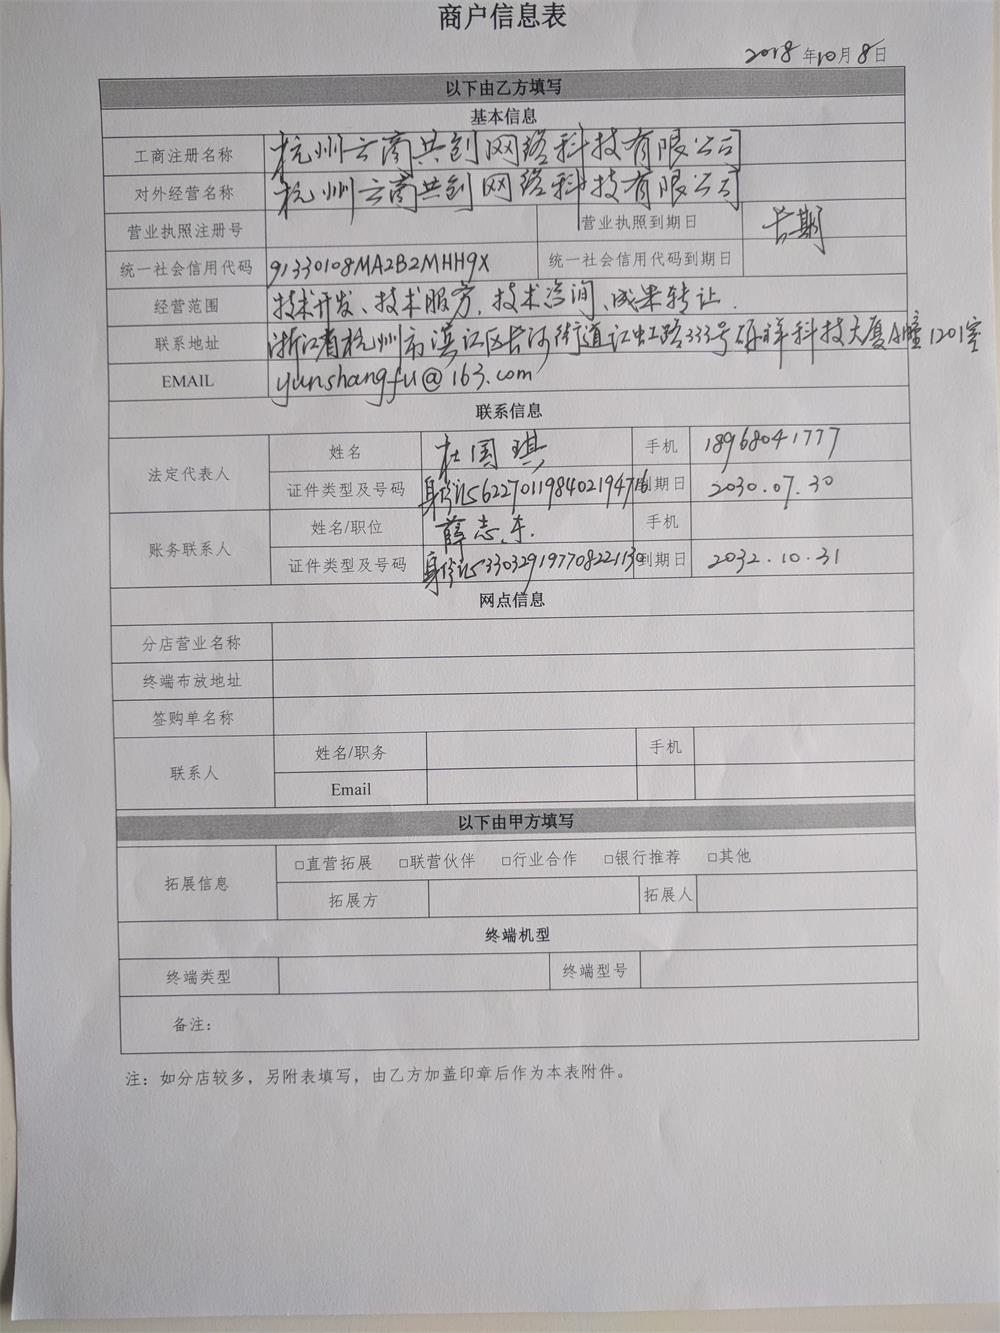 商户信息表
2018年10月8日
以下由乙方填写
基本信息
工商注册名称 杭州云商共创网络科技有限公司
对外经营名称 杭州云商共创网络科技有限公司
营业执照注册号 营业执照到期日 长期
统一社会信用代码 91330108MA2B2MHH9X 统一社会信用代码到期日
经营范围 技术开发、技术服务,技术咨询、成果转让.
联系地址 浙江省杭州市滨江区长河街道江虹路333号研祥科技大厦A幢1201室
EMAIL yunshangfu@163.com
联系信息
法定代表人 姓名 杜国琪 手机 18968041777
证件类型及号码 身份证 到期日 2030.07.30
账务联系人 姓名/职位 薛志东. 手机
证件类型及号码 身份证 到期日 2032.10.31
网点信息
分店营业名称
终端布放地址
签购单名称
联系人 姓名/职务 手机
Email
以下由甲方填写
拓展信息 □直营拓展 □联营伙伴 □行业合作 □银行推荐 □其他
拓展方 拓展人
终端机型
终端类型 终端型号
备注：
注：如分店较多，另附表填写，由乙方加盖印章后作为本表附件。